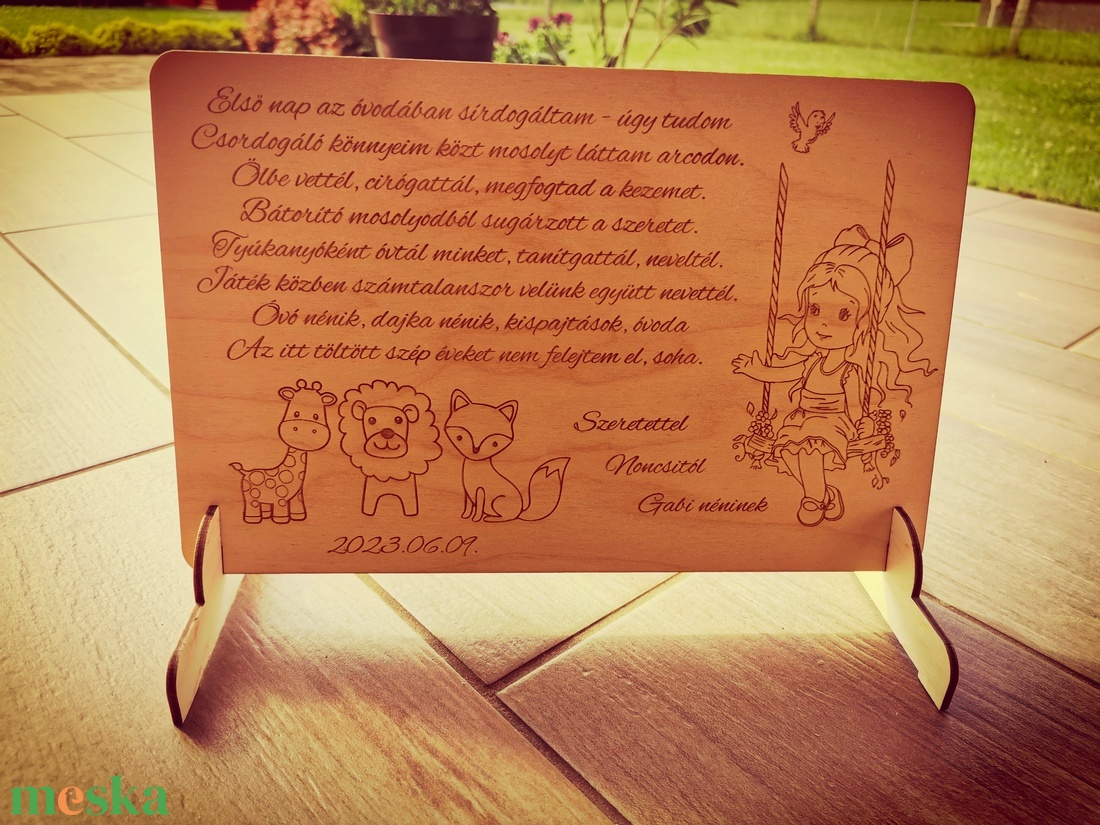 Első nap az óvodában sírdogáltam - úgy tudom
Csordogáló könnyeim közt mosolyt láttam arcodon.
Ölbe vettél, cirógattál, megfogtad a kezemet.
Bátorító mosolyodból sugárzott a szeretet.
Tyúkanyóként óvtál minket, tanítgattál, neveltél.
Játék közben számtalanszor velünk együtt nevettél.
Óvó nénik, dajka nénik, kispajtások, óvoda
Az itt töltött szép éveket nem felejtem el, soha.
Szeretettel
Noncsitól
Gabi néninek
2023.06.09.
meska